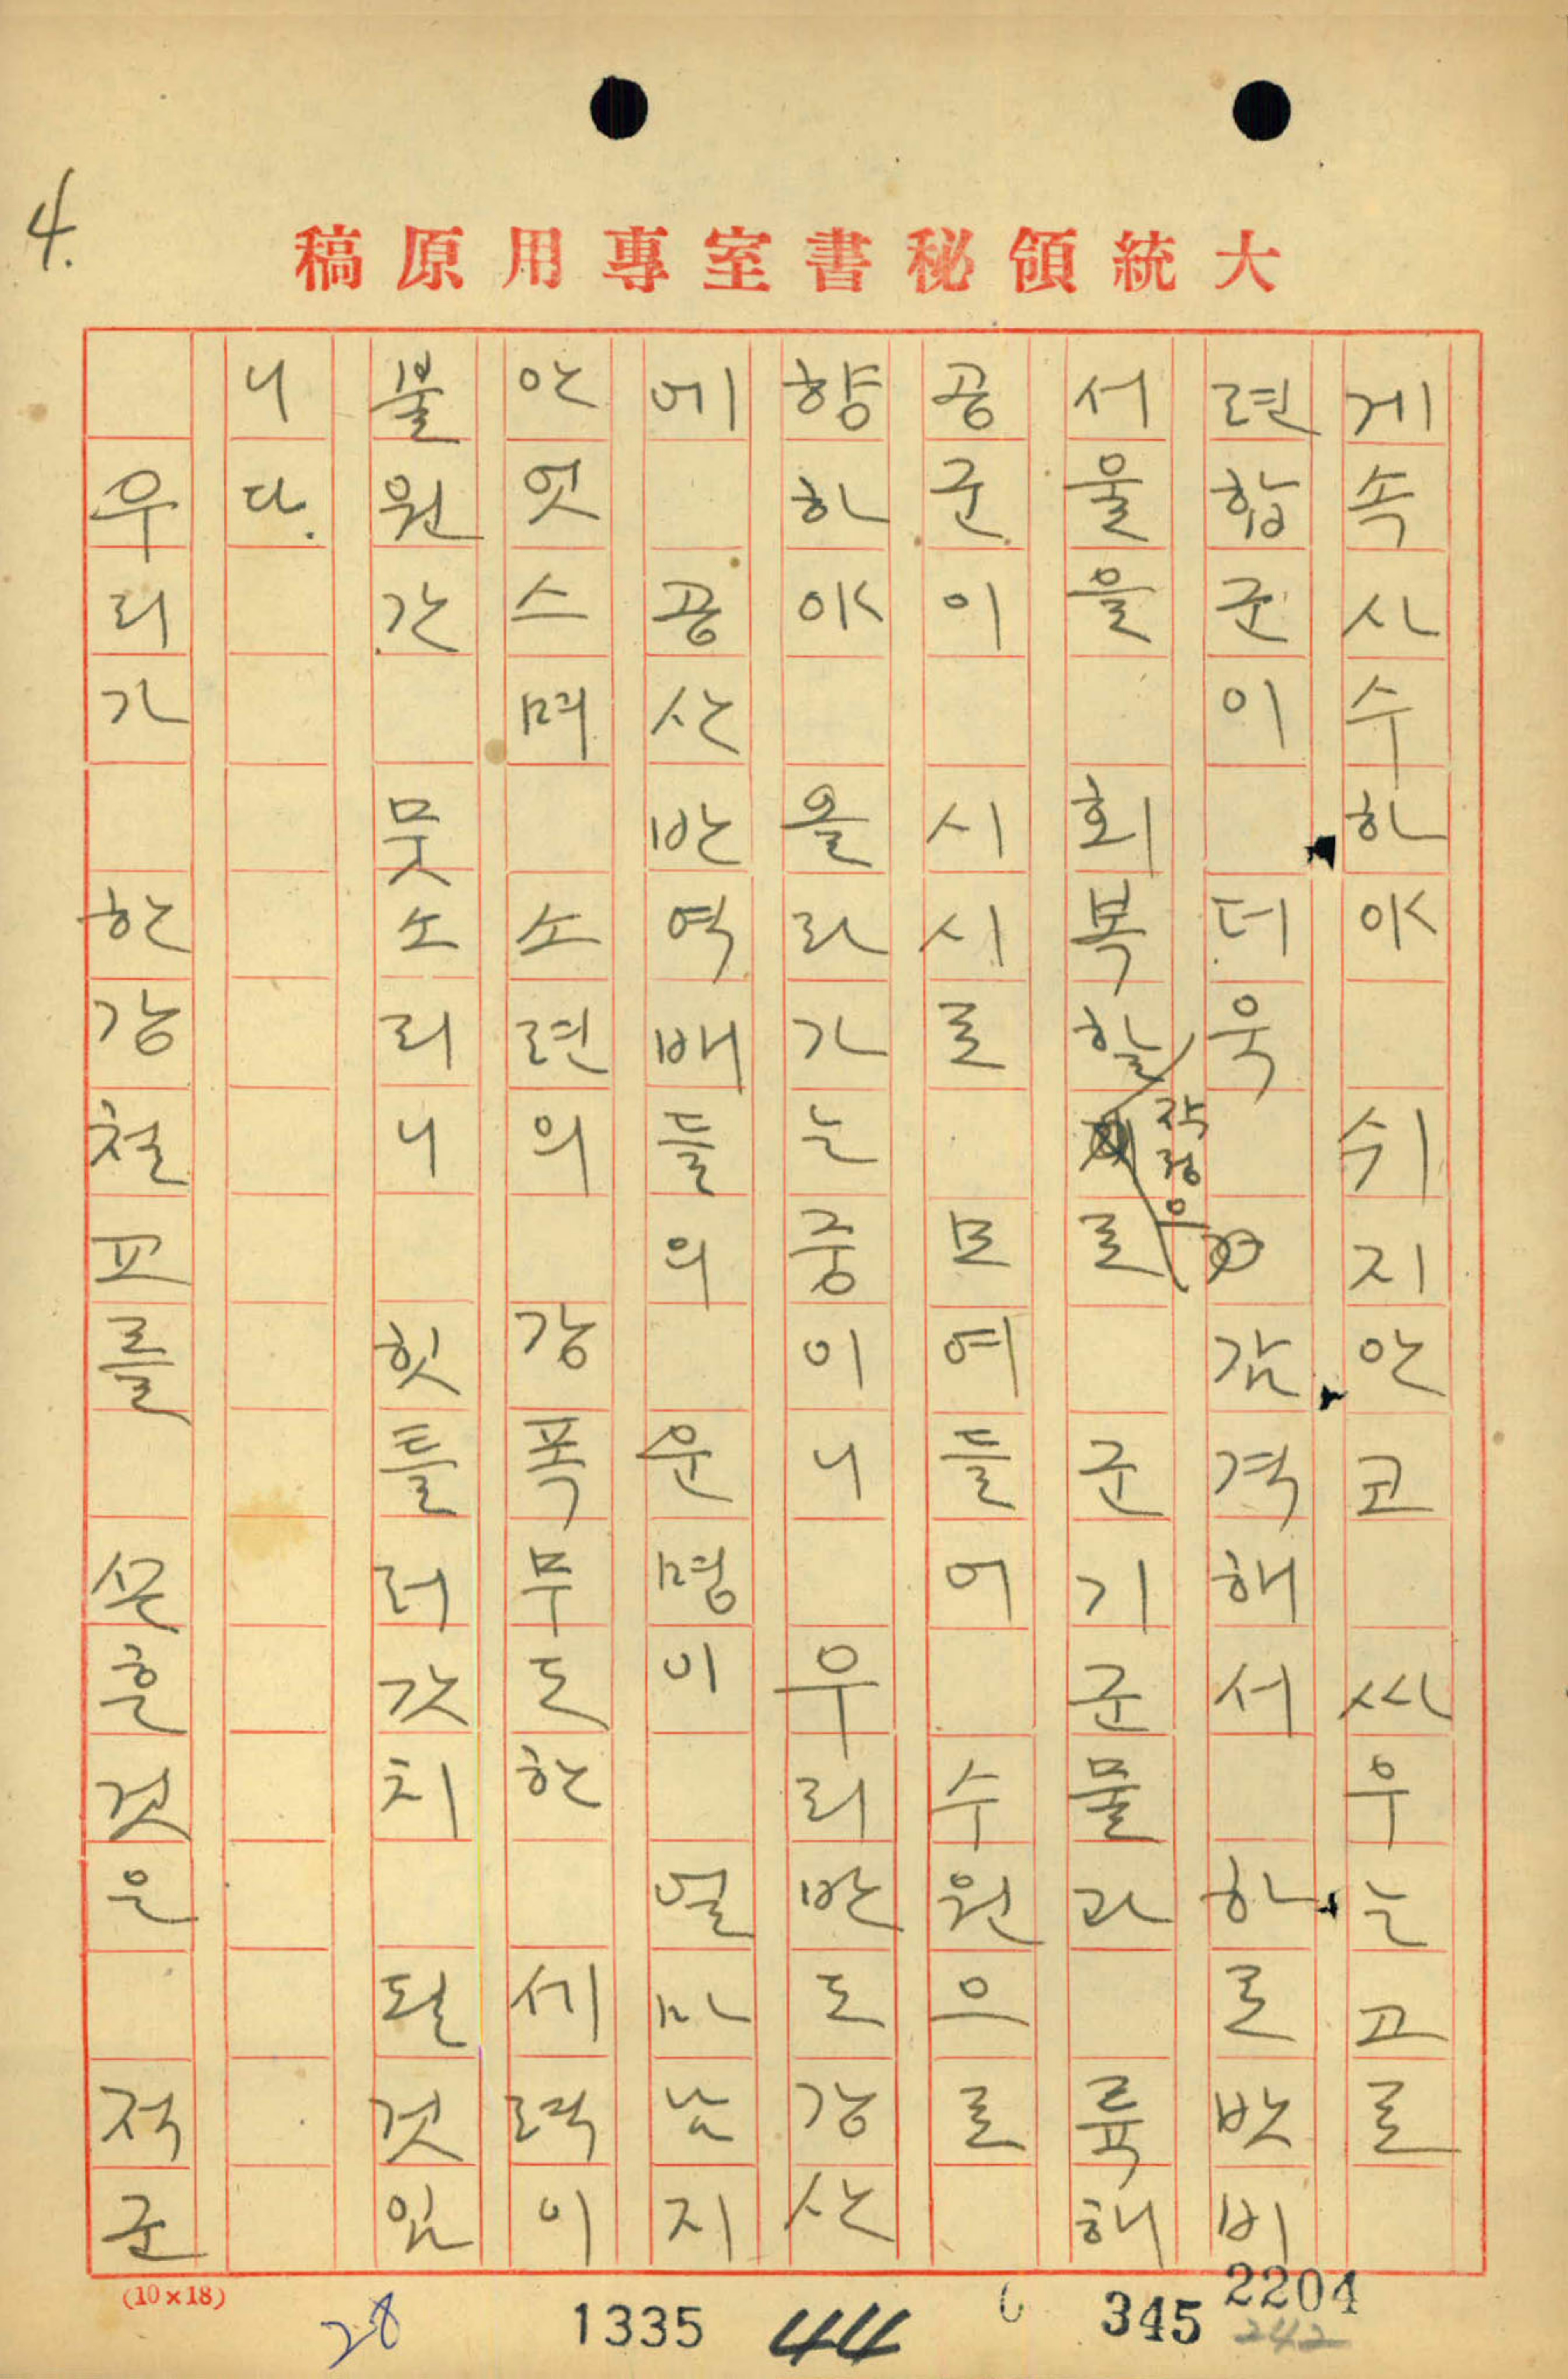 4.
大統領秘書室專用原稿
게속사수하야 쉬지안코 싸우는고로
련합군이 더욱 감격해서 하로밧비
서울을 회복할 작정으로 군기군물과 륙해
공군이 시시로 모여들어 수원으로
향하야 올라가는중이니 우리반도강산
에 공산반역배들의 운명이 얼마남지
안엇스며 소련의 강폭무도한 세력이
불원간 뭇소리니 힛틀러갓치 될것임
니다.
우리가 한강철교를 쓴흔것은 적군
(10×18)
28 1335 44 6 345 2204
242